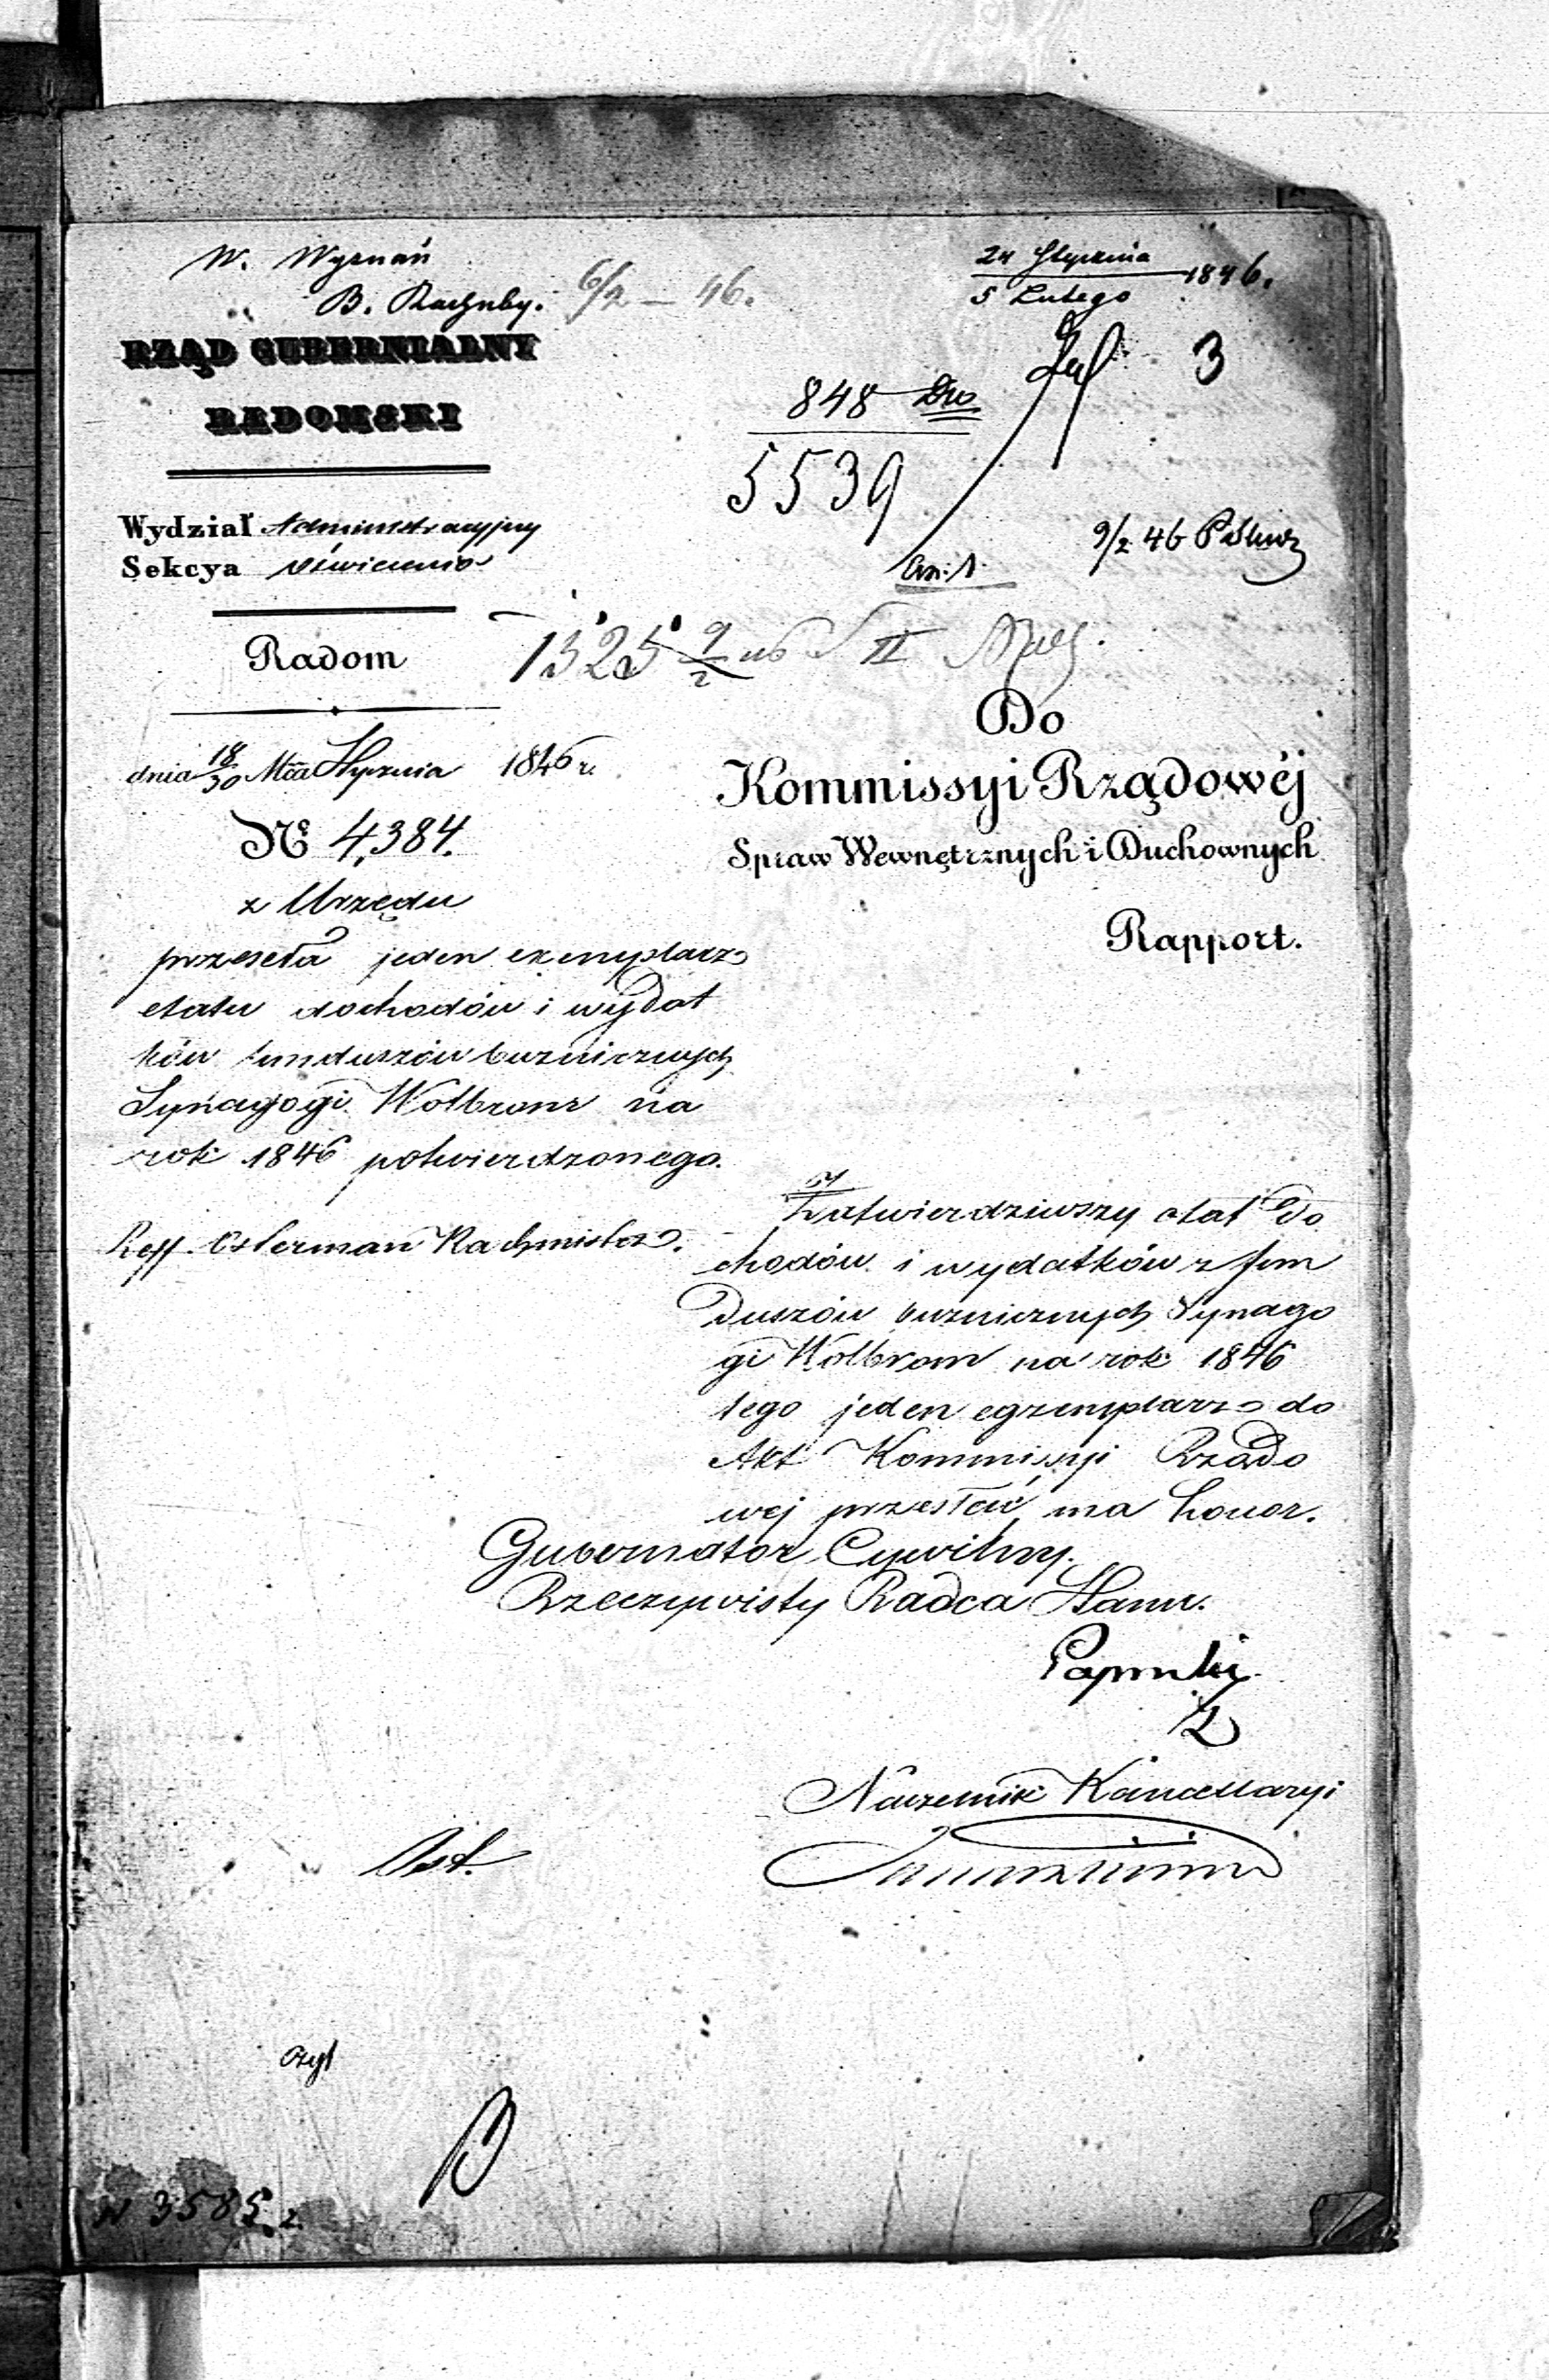 W. Wyznań
B. Rachuby.
6/2 — 46.
24 Stycznia
5 Lutego 1846.
3
RZĄD GUBERNIALNY
RADOMSKI
848
5539
Wydział Administracyjny
Sekcya Oświecenia
9/2 46
1325 9/2 46 II
Radom
Do
Kommissyi Rządowéj
Spraw Wewnętrznych i Duchownych
Rapport.
dnia 18/30 Mca Stycznia 1846 r.
No 4,384.
z Urzędu
przeseła jeden exemplarz
etatu dochodów i wydat
ków funduszów bużnicznych
Synagogi Wolbrom na
rok 1846 potwierdzonego.
Reff. Osterman Rachmistrz.
Zatwierdziwszy etat do
chodów i wydatków z fun
duszów bużnicznych Synago
gi Wolbrom na rok 1846
tego jeden egzemplarz do
Akt Kommissyi Rządo
wej przesłać ma honor.
Gubernator Cywilny.
Rzeczywisty Radca Stanu.
Naczelnik Kancellaryi
Ost.
czył
N 3585